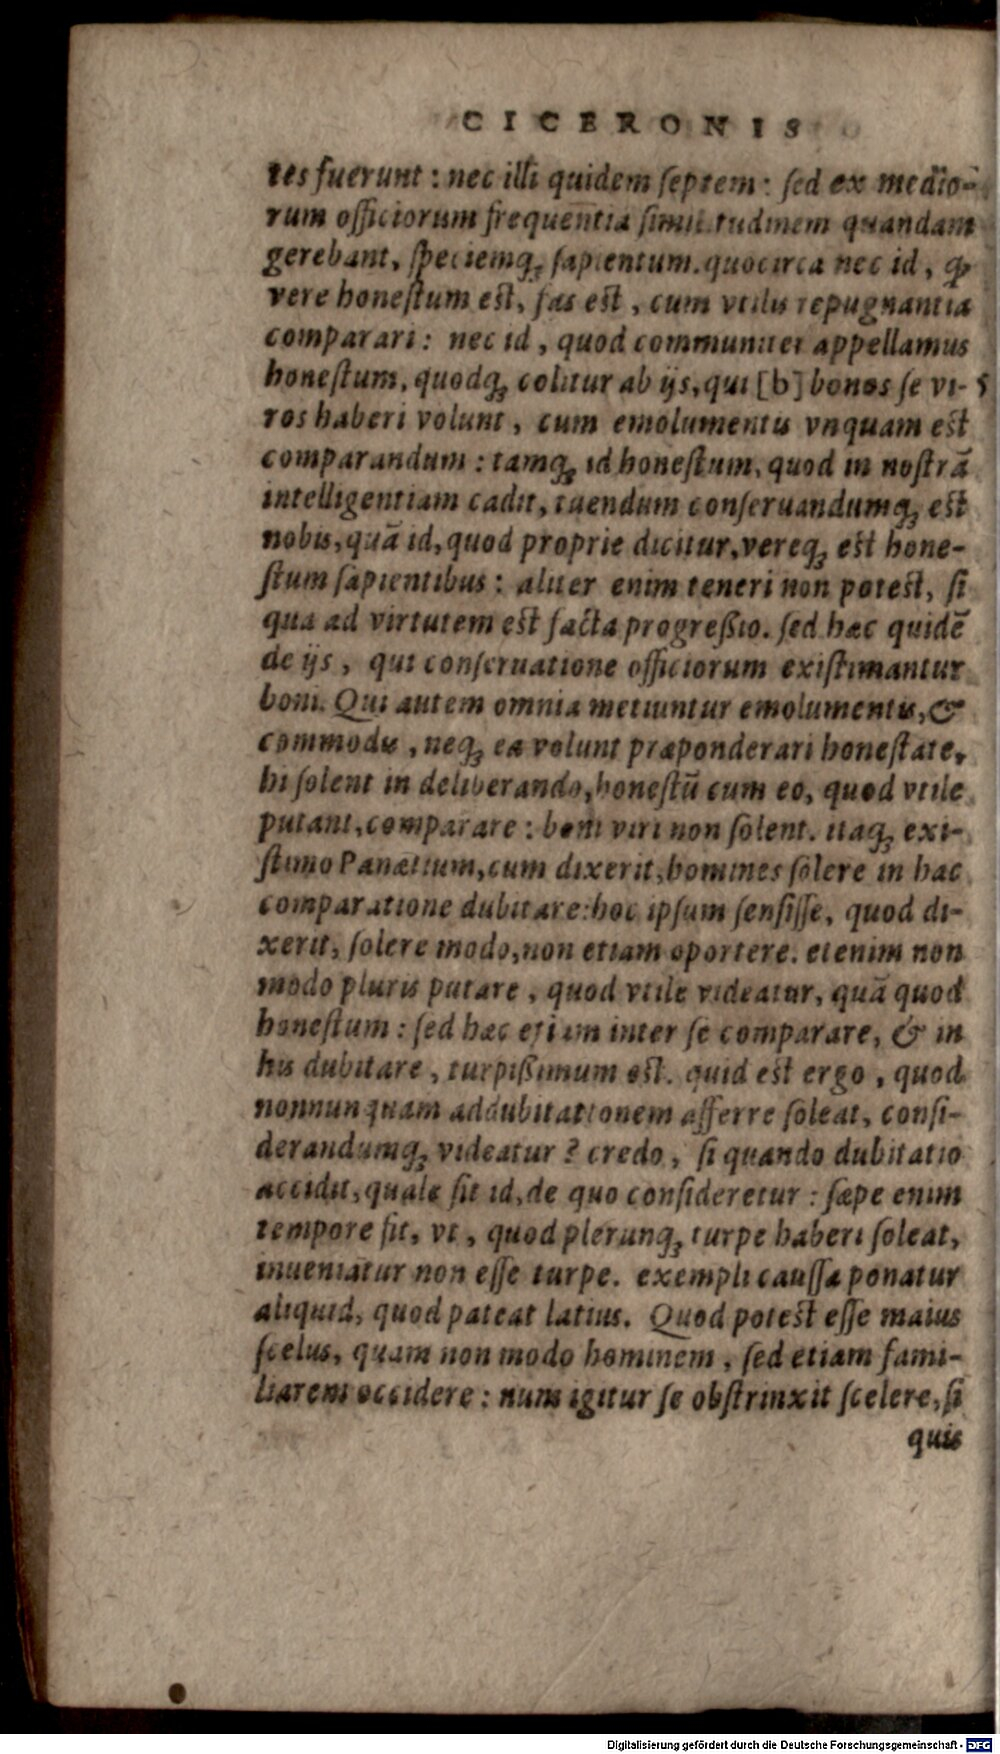 CICERONIS
tes fuerunt: nec illi quidem ſeptem: ſed ex medio-
rum officiorum frequentia ſimilitudinem quandam
gerebant, ſpeciemq́; ſapientum. quocirca nec id, ꝙ
vere honeſtum eſt, fas eſt, cum vtilis repugnantia
comparari: nec id, quod communiter appellamus
honeſtum, quodq́; colitur ab ijs, qui [b] bonos ſe vi- 5
ros haberi volunt, cum emolumentis vnquam eſt
comparandum: tamq́; id honeſtum, quod in noſtrã
intelligentiam cadit, tuendum conſeruandumq́; eſt
nobis, quã id, quod proprie dicitur, vereq́; eſt hone-
ſtum ſapientibus: aliter enim teneri non poteſt, ſi
qua ad virtutem eſt facta progreßio. ſed hæc quidẽ
de ijs, qui conſeruatione officiorum exiſtimantur
boni. Qui autem omnia metiuntur emolumentis, &
commodis, neq́; ea volunt præponderari honeſtate,
hi ſolent in deliberando, honeſtũ cum eo, quod vtile
putant, comparare: boni viri non ſolent. itaq́; exi-
ſtimo Panætium, cum dixerit, homines ſolere in hac
comparatione dubitare: hoc ipſum ſenſiſſe, quod di-
xerit, ſolere modo, non etiam oportere. etenim non
modo pluris putare, quod vtile videatur, quã quod
honeſtum: ſed hæc etiam inter ſe comparare, & in
his dubitare, turpißimum eſt. quid eſt ergo, quod
nonnunquam addubitationem afferre ſoleat, conſi-
derandumq́; videatur? credo, ſi quando dubitatio
accidit, quale ſit id, de quo conſideretur: ſæpe enim
tempore fit, vt, quod plerunq́; turpe haberi ſoleat,
inueniatur non eſſe turpe. exempli cauſſa ponatur
aliquid, quod pateat latius. Quod poteſt eſſe maius
ſcelus, quam non modo hominem, ſed etiam fami-
liarem occidere: num igitur ſe obſtrinxit ſcelere, ſi
quis
Digitalisierung gefördert durch die Deutsche Forschungsgemeinschaft - DFG